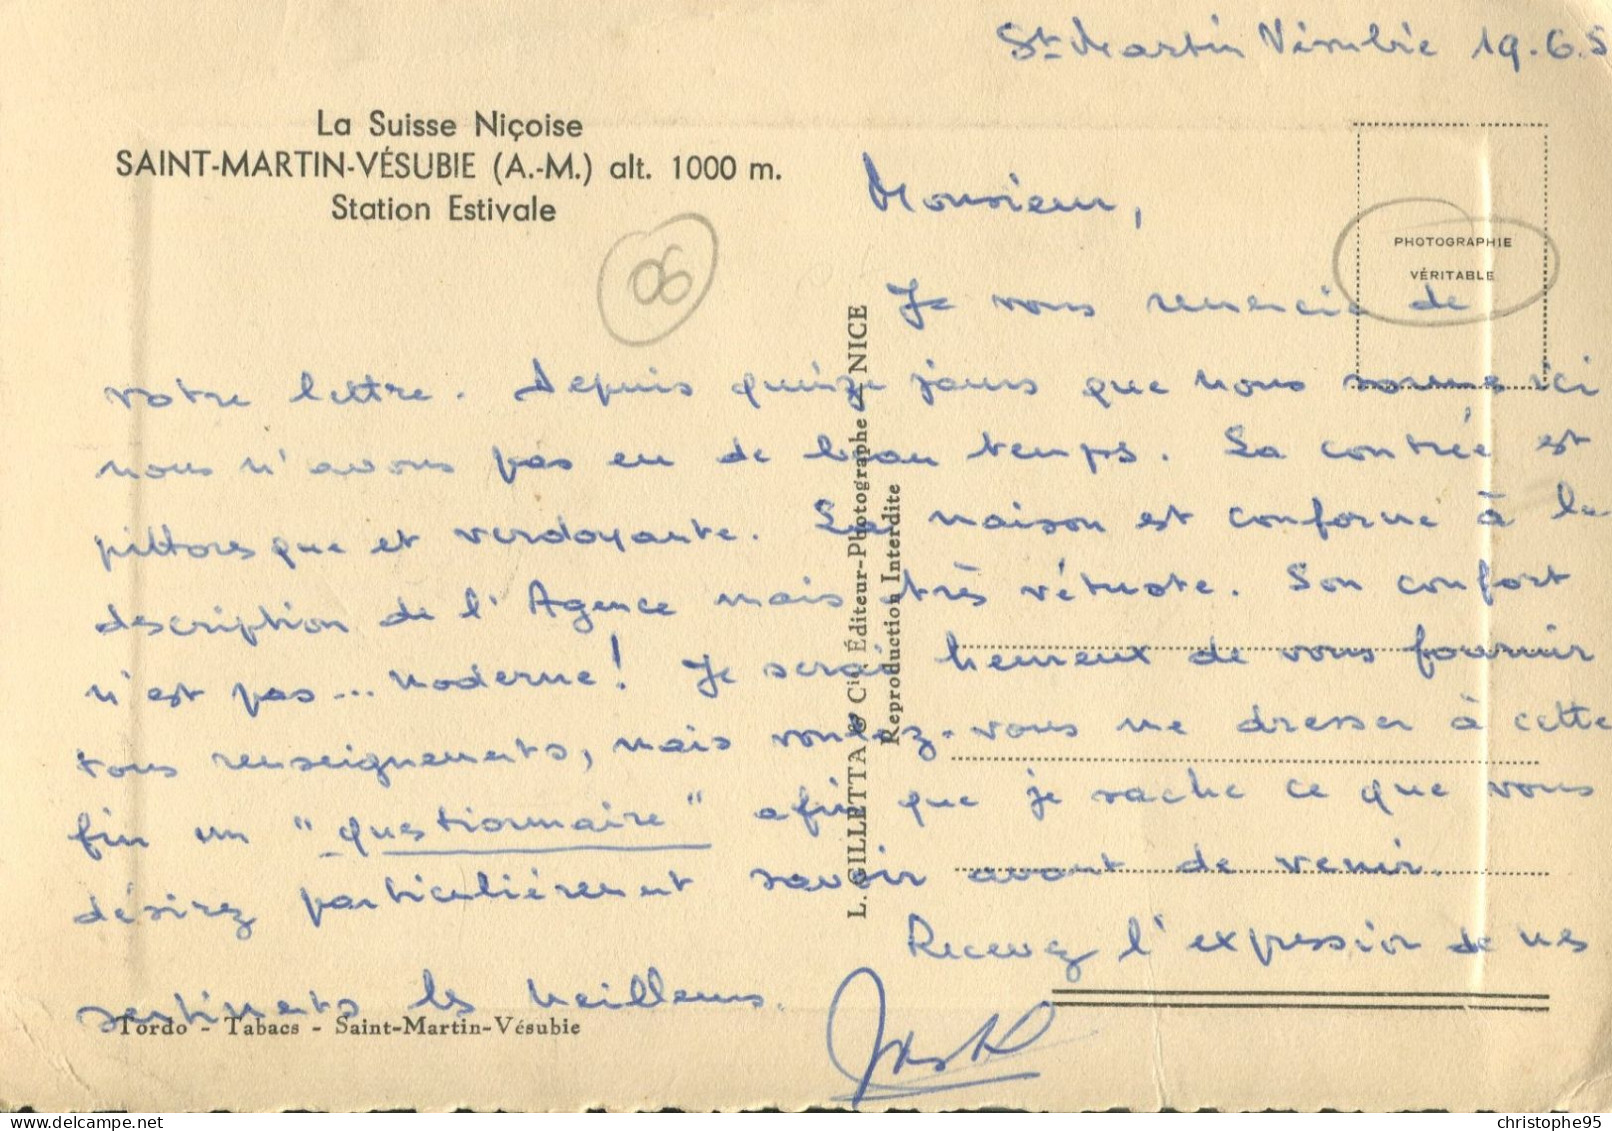 St Martin Vésubie 19.6.5
La Suisse Niçoise
SAINT-MARTIN-VÉSUBIE (A.-M.) alt. 1000 m.
Station Estivale
06
PHOTOGRAPHIE
VÉRITABLE
Monsieur,
Je vous remercie de
votre lettre. Depuis quinze jours que nous sommes ici
nous n'avons pas eu de beau temps. La contrée est
pittoresque et verdoyante. La maison est conforme à la
description de l'Agence mais très vétuste. Son confort
n'est pas... moderne! Je serai heureux de vous fournir
tous renseignements, mais voulez-vous me dresser à cette
fin un "questionnaire" afin que je sache ce que vous
désirez particulièrement savoir avant de venir.
Recevez l'expression de mes
sentiments les meilleurs.
L. GILLETTA & Cie, Éditeur-Photographe, NICE
Reproduction Interdite
Tordo - Tabacs - Saint-Martin-Vésubie
christophe95